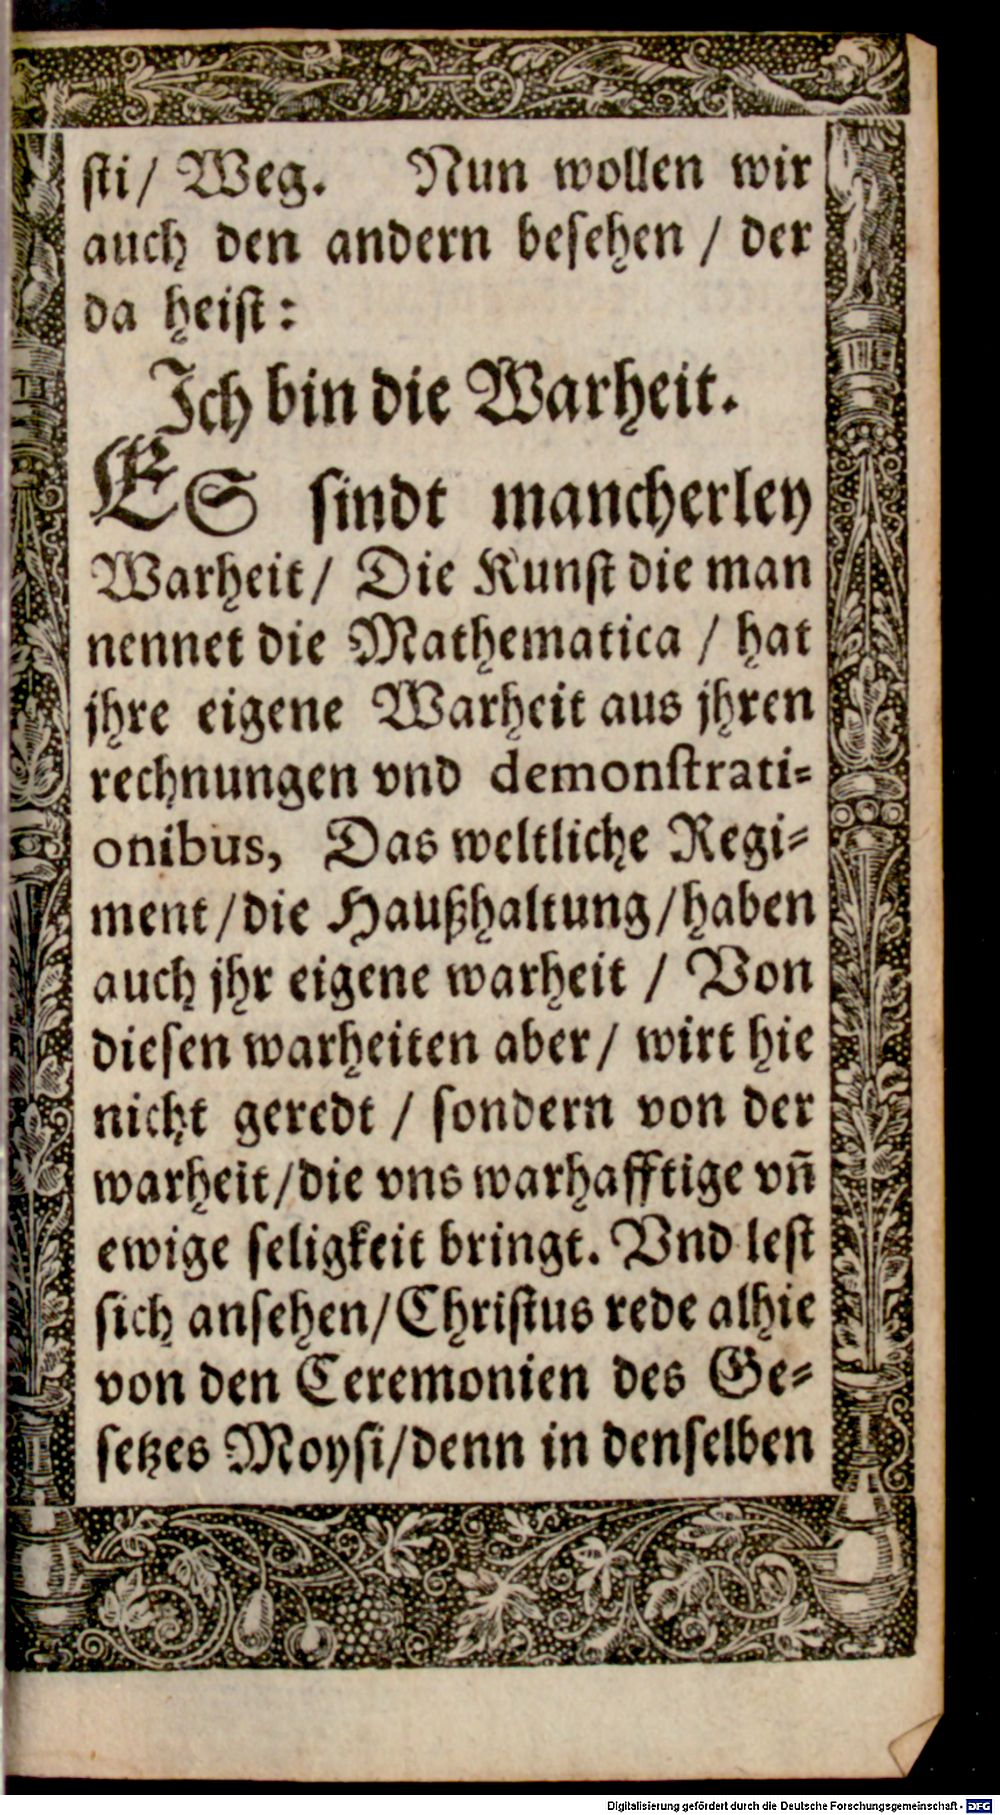 sti/ Weg. Nun wollen wir
auch den andern besehen / der
da heist:
Ich bin die Warheit.
ES sindt mancherley
Warheit/ Die Kunst die man
nennet die Mathematica / hat
jhre eigene Warheit aus jhren
rechnungen vnd demonstrati-
onibus, Das weltliche Regi-
ment/die Haußhaltung/haben
auch jhr eigene warheit / Von
diesen warheiten aber/ wirt hie
nicht geredt / sondern von der
warheit/die vns warhafftige vn̄
ewige seligkeit bringt. Vnd lest
sich ansehen/Christus rede alhie
von den Ceremonien des Ge-
setzes Moysi/denn in denselben
Digitalisierung gefördert durch die Deutsche Forschungsgemeinschaft - DFG